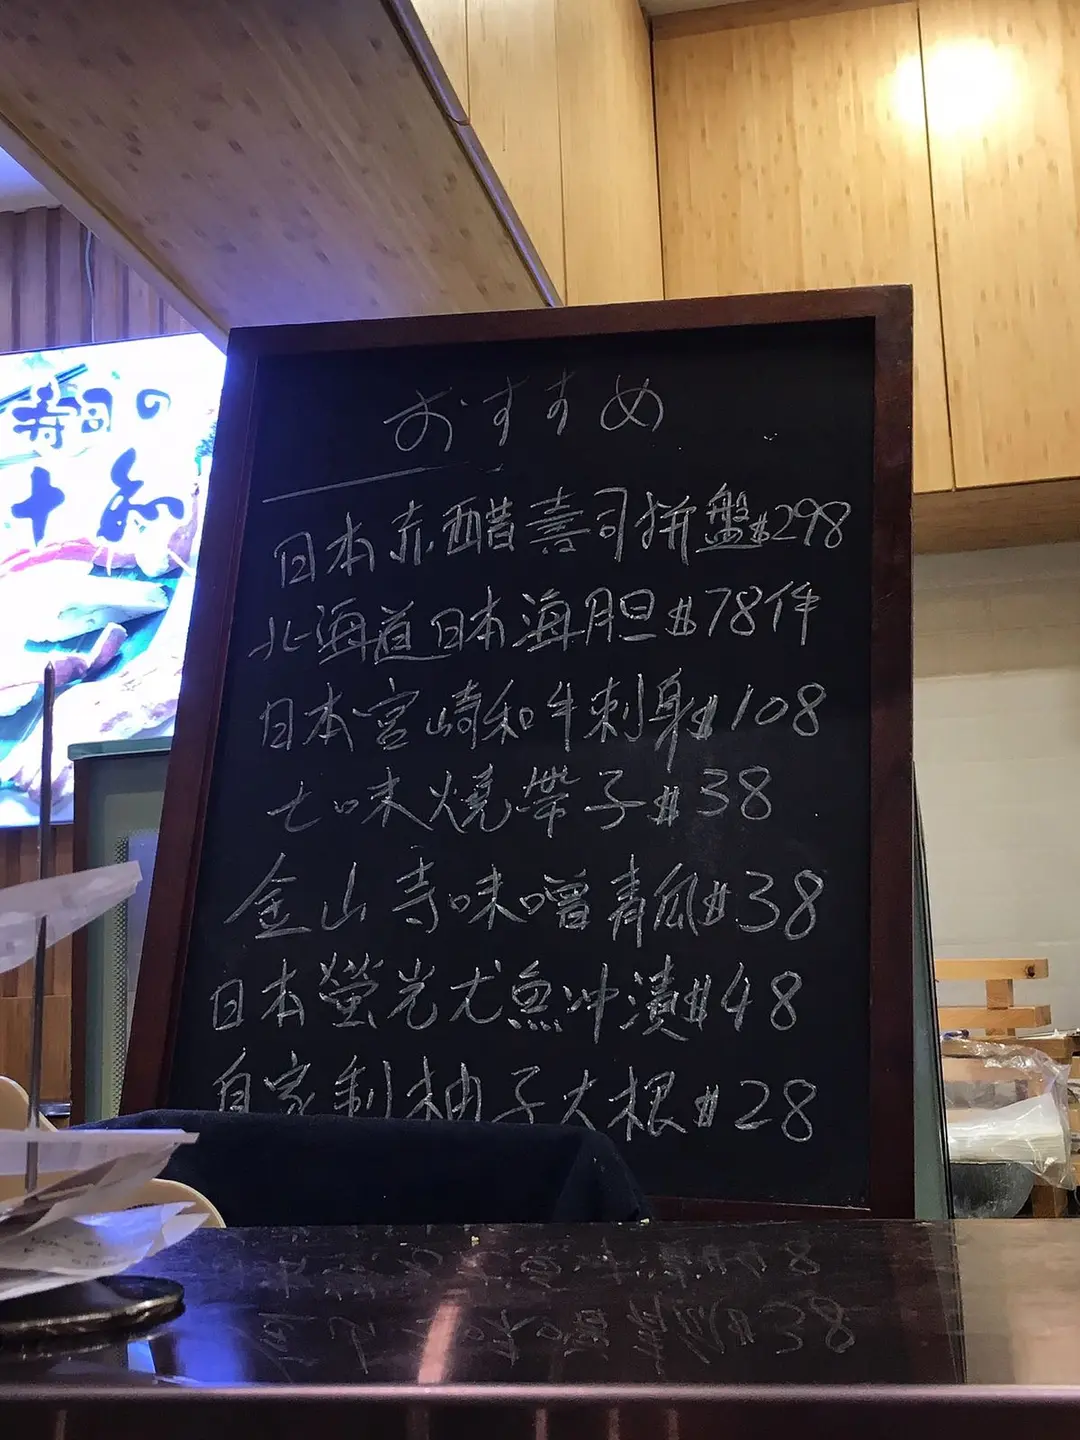 寿司の
十和
おすすめ
日本赤醋壽司拼盤$298
北海道日本海胆$78件
日本宮崎和牛刺身$108
七味燒帶子$38
金山寺味噌青瓜$38
日本螢光尤魚沖漬$48
自家制柚子大根$28